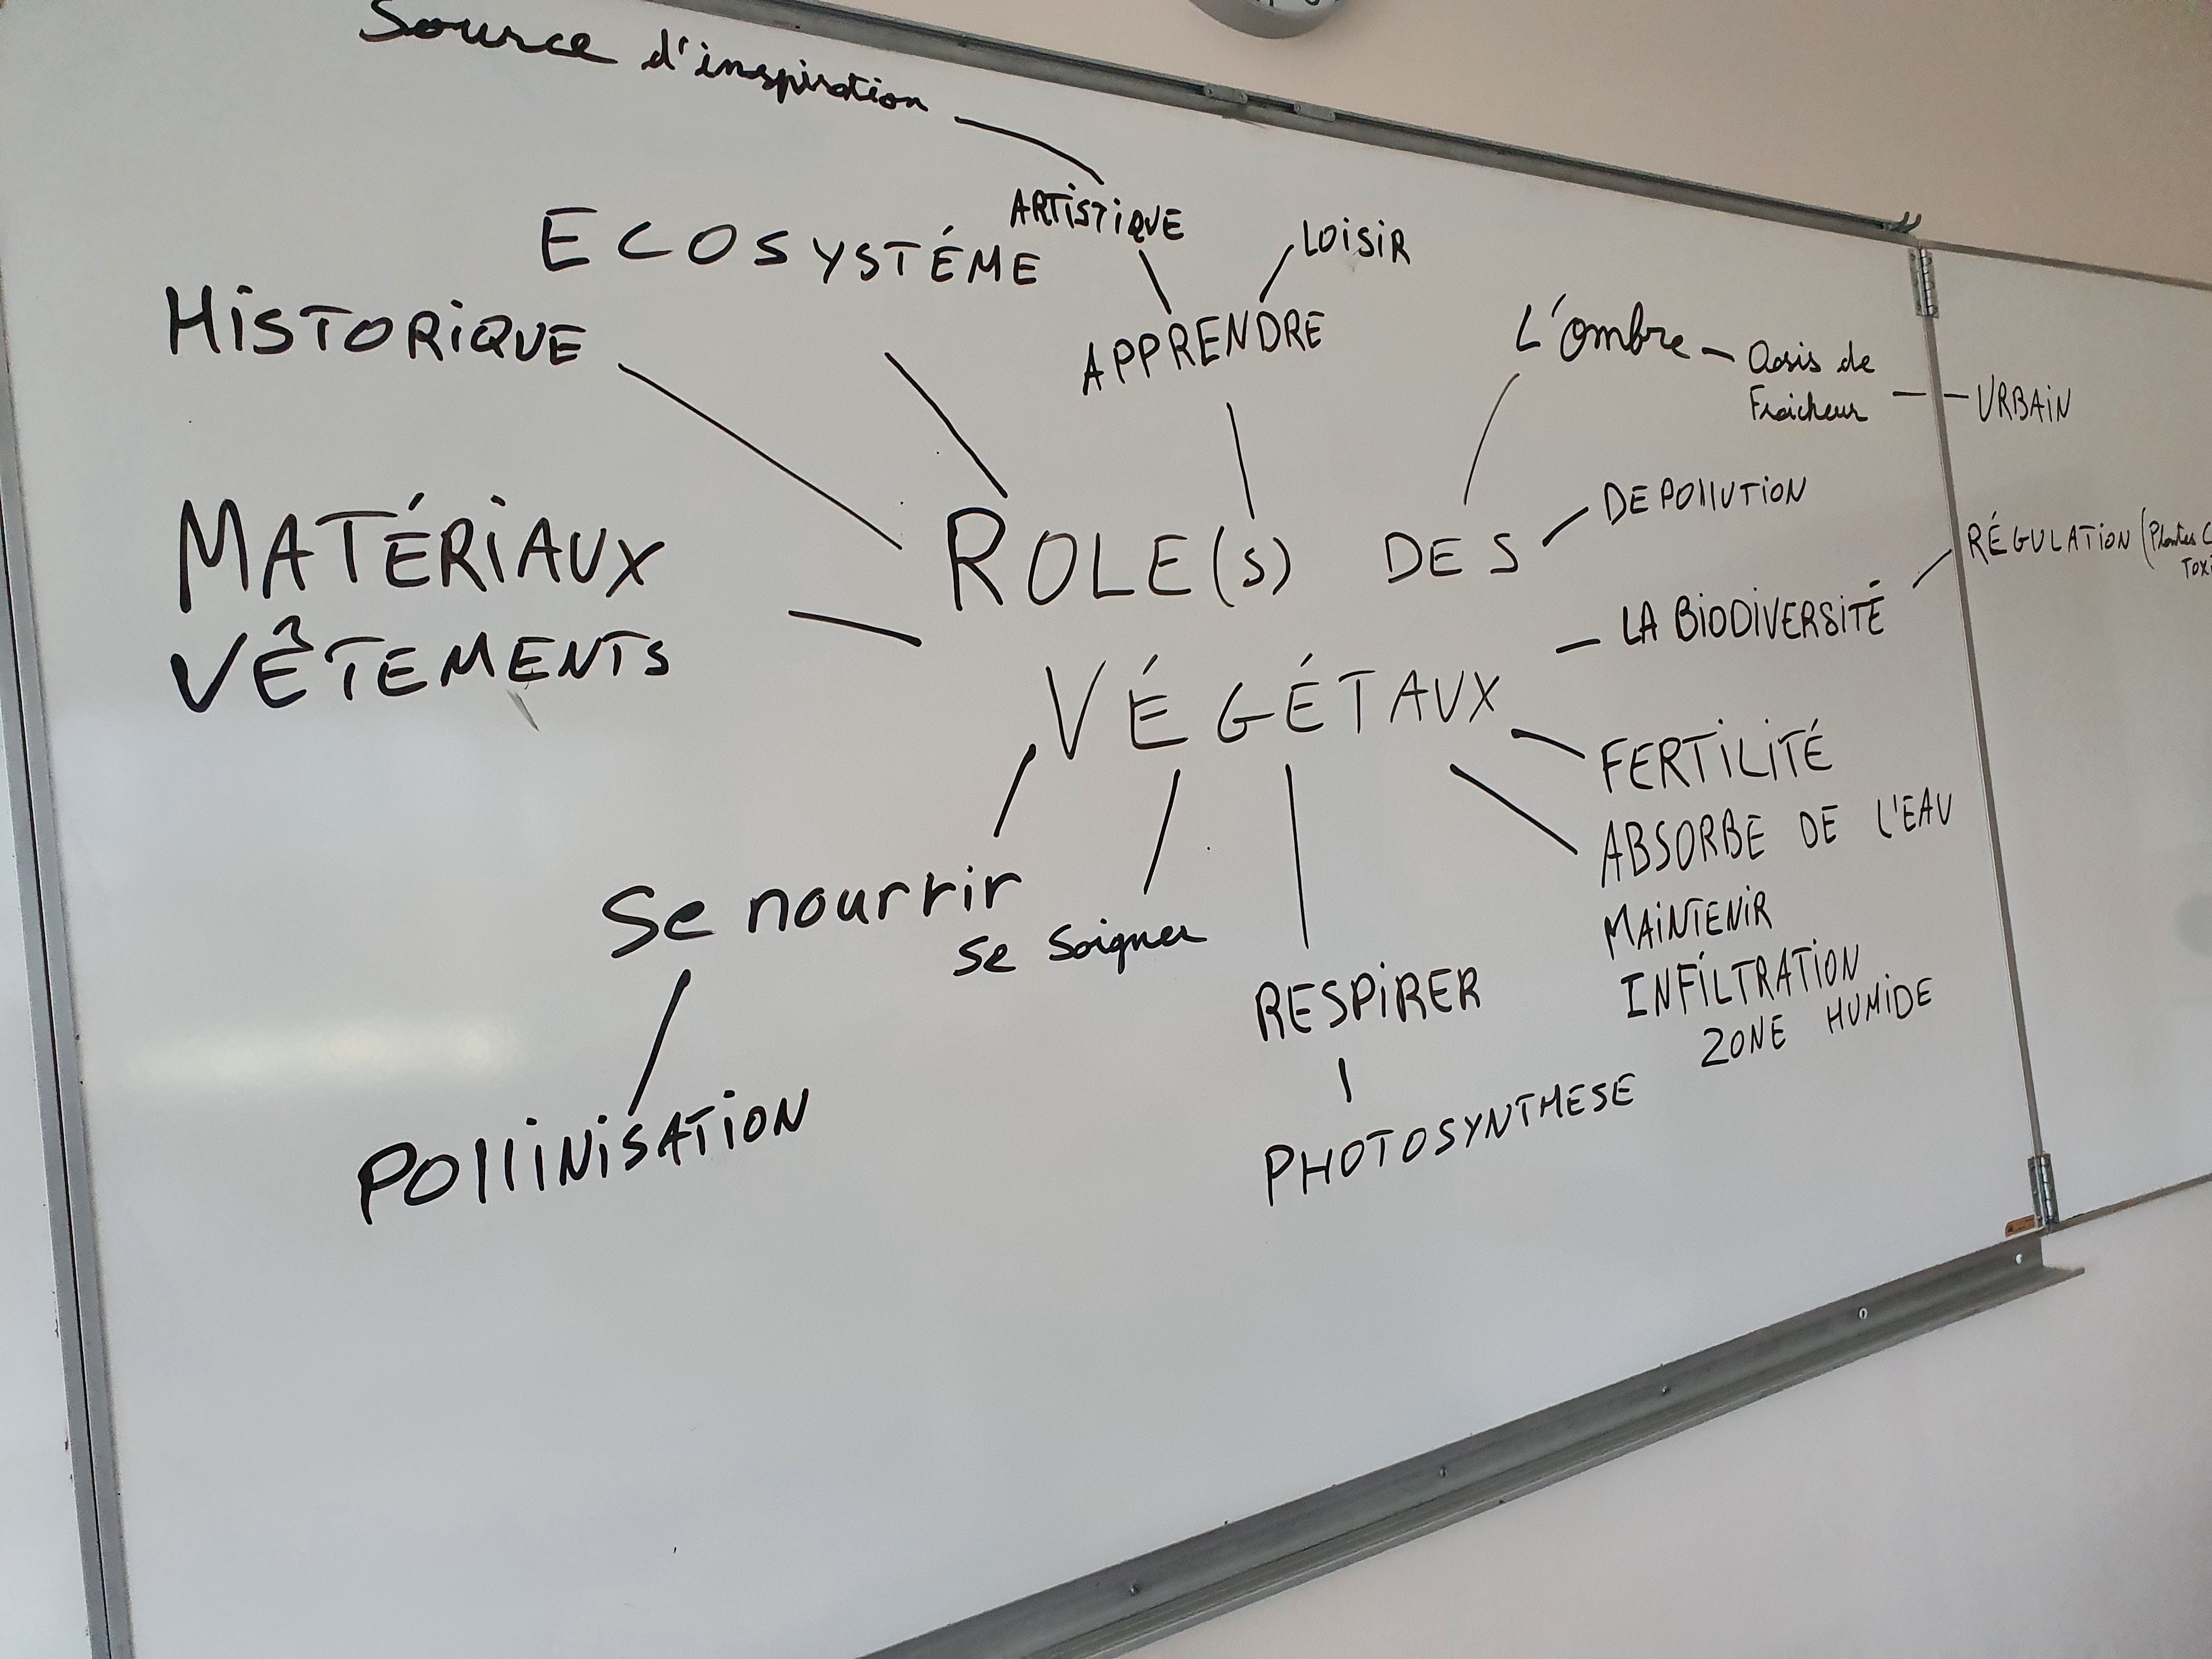 Source d'inspiration
ARTISTIQUE
LOISIR
ECOSYSTÉME
HISTORIQUE
APPRENDRE
L'ombre
Oasis de
Fraicheur
URBAIN
MATÉRIAUX
VÊTEMENTS
ROLE(S) DES
VÉGÉTAUX
DEPOLLUTION
RÉGULATION (Plantes
LA BIODIVERSITÉ
FERTILITÉ
ABSORBE DE L'EAU
MAINTENIR
INFILTRATION
ZONE HUMIDE
Se nourrir
Se Soigner
RESPIRER
PHOTOSYNTHESE
POLLINISATION